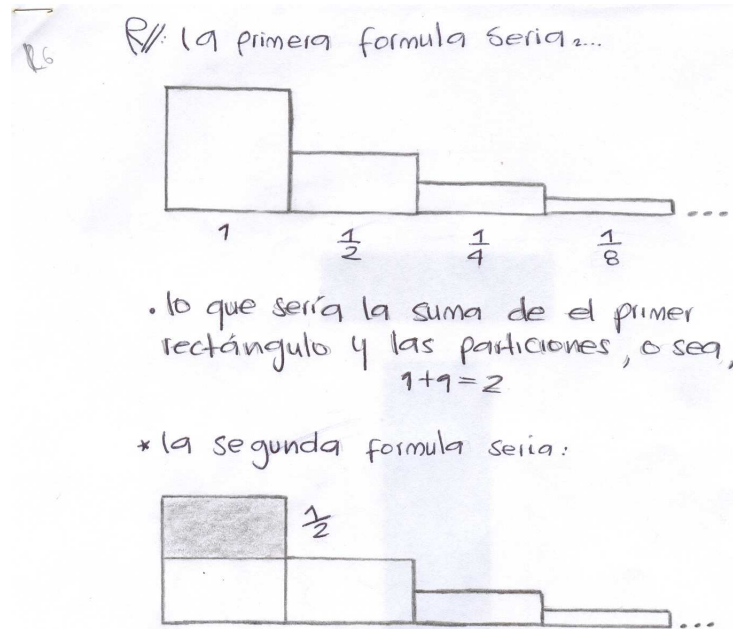 R6
R//: la primera formula seria...
1 1/2 1/4 1/8 ...
. lo que sería la suma de el primer
rectángulo y las particiones, o sea,
1+1=2
* la segunda formula seria:
1/2
...